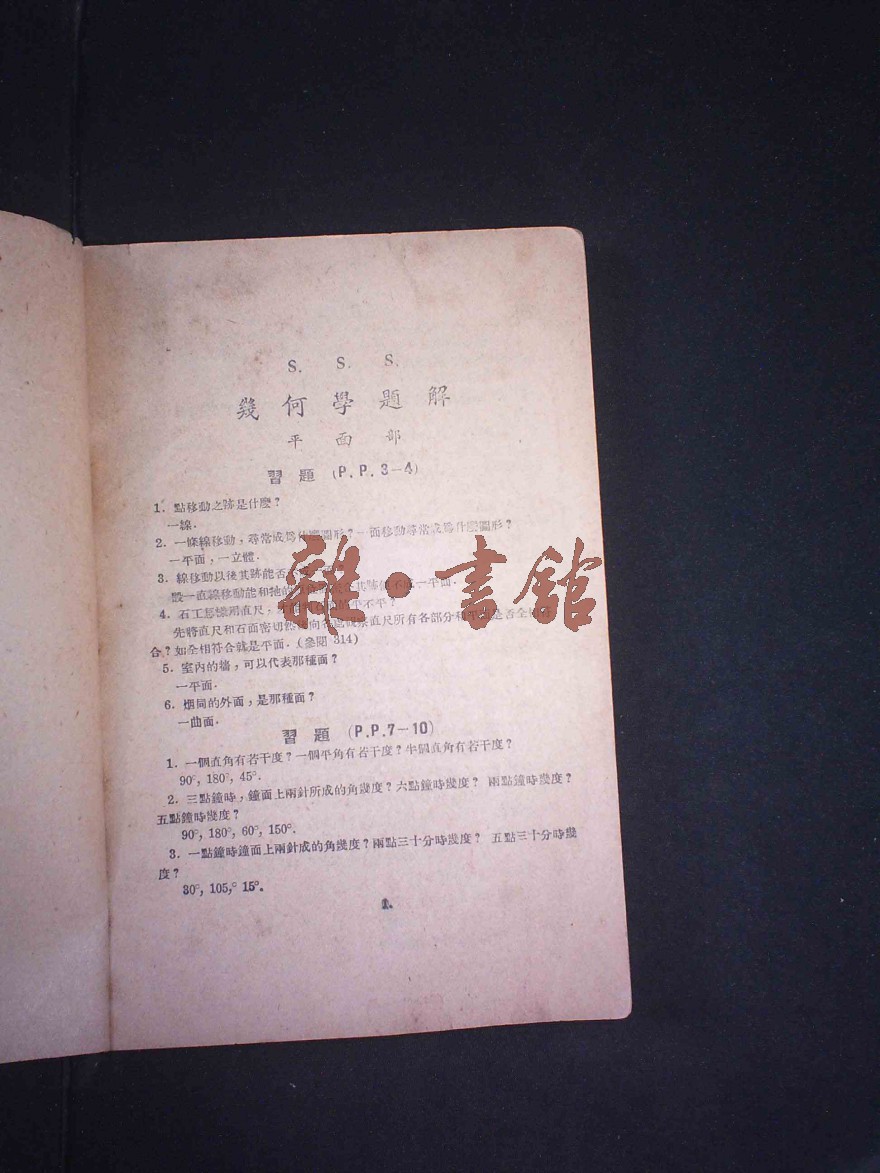 S. S. S.
幾何學題解
平面部
習題 (P.P.3-4)
1. 點移動之跡是什麼?
一線.
2. 一條線移動,尋常成爲什麼圖形?一面移動尋常成爲什麼圖形?
一平面,一立體.
3. 線移動以後其跡能否
設一直線移動能和牠的 其跡 不成一平面.
4. 石工怎樣用直尺, 平不平?
先將直尺和石面密切然後向各 直尺所有各部分和平 是否全
合?如全相符合就是平面.(參閱 314)
5. 室內的牆,可以代表那種面?
一平面.
6. 烟囪的外面,是那種面?
一曲面.
習題 (P.P.7-10)
1. 一個直角有若干度?一個平角有若干度?半個直角有若干度?
90°, 180°, 45°.
2. 三點鐘時,鐘面上兩針所成的角幾度?六點鐘時幾度? 兩點鐘時幾度?
五點鐘時幾度?
90°, 180°, 60°, 150°.
3. 一點鐘時鐘面上兩針成的角幾度?兩點三十分時幾度? 五點三十分時幾
度?
30°, 105,° 15°.
1.
雜·書館